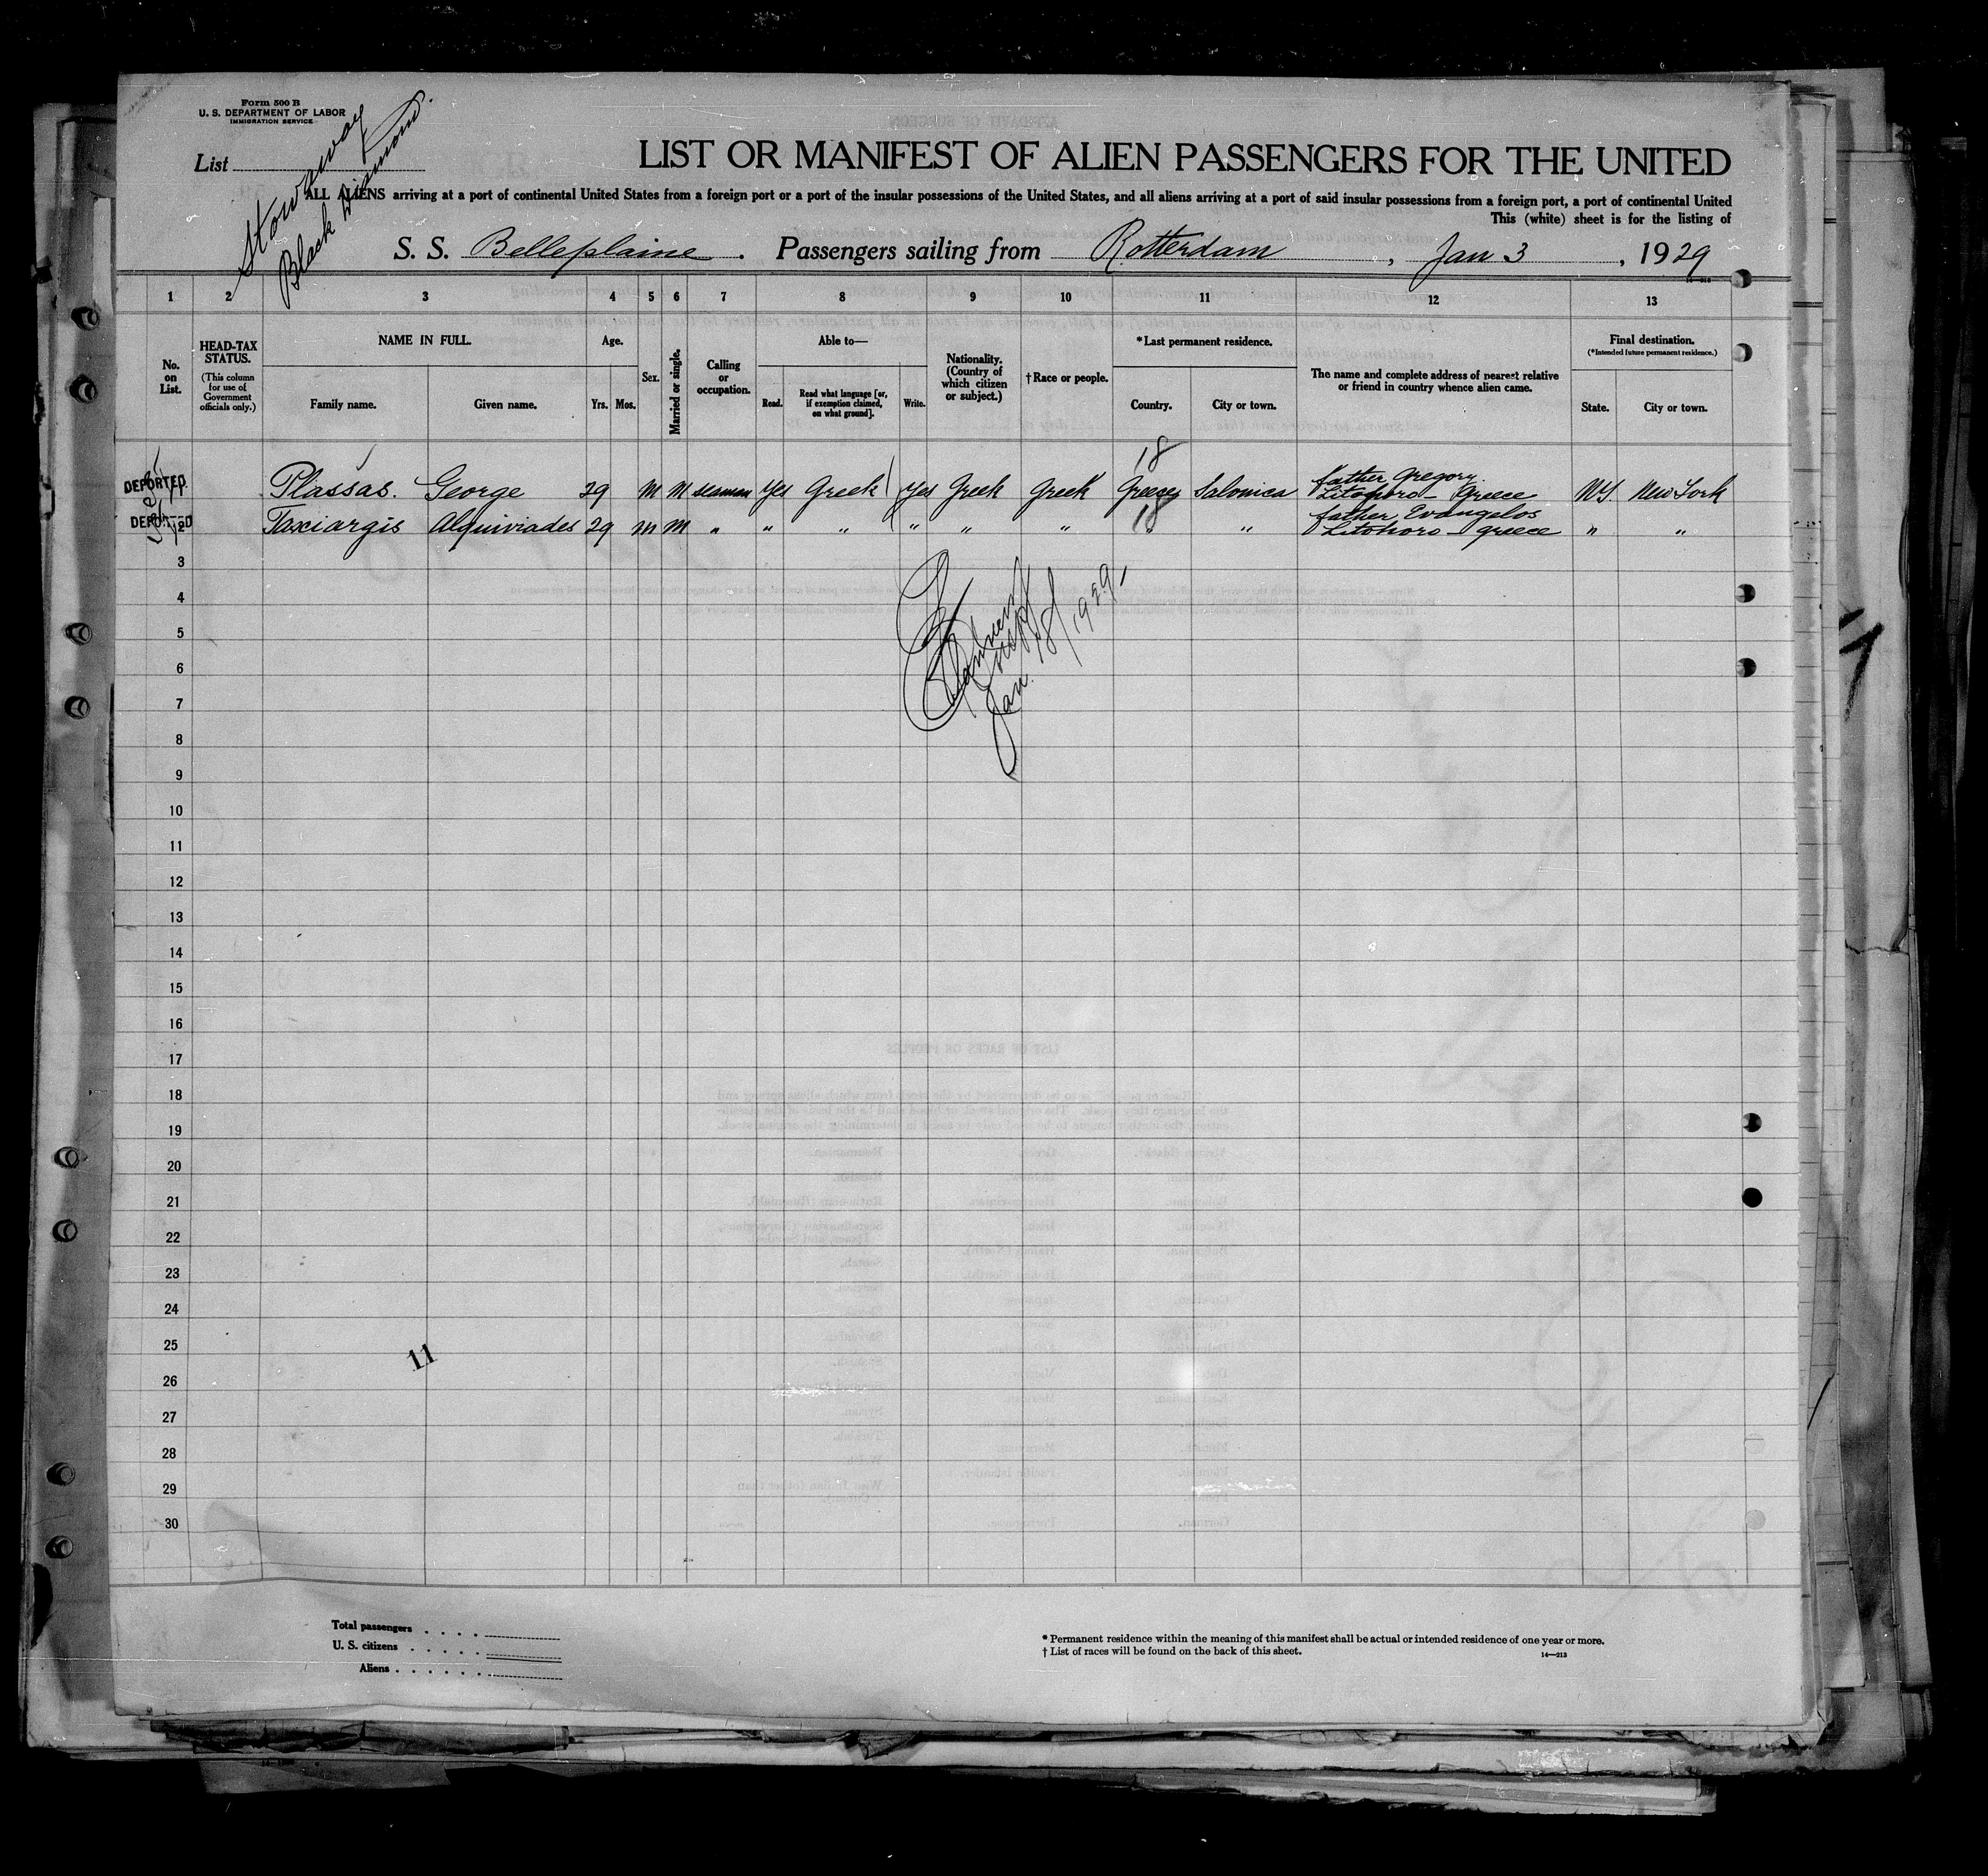 Form 500 B
U. S. DEPARTMENT OF LABOR
IMMIGRATION SERVICE
Stowaway
Black Diamond.
List
LIST OR MANIFEST OF ALIEN PASSENGERS FOR THE UNITED
ALL ALIENS arriving at a port of continental United States from a foreign port or a port of the insular possessions of the United States, and all aliens arriving at a port of said insular possessions from a foreign port, a port of continental United
This (white) sheet is for the listing of
S. S. Belleplaine. Passengers sailing from Rotterdam, Jan 3, 1929
1 2 3 4 5 6 7 8 9 10 11 12 13
No. on List.
HEAD-TAX STATUS.
(This column for use of Government officials only.)
NAME IN FULL.
Family name. Given name.
Age.
Yrs. Mos.
Sex.
Married or single.
Calling or occupation.
Able to—
Read. Read what language [or, if exemption claimed, on what ground]. Write.
Nationality. (Country of which citizen or subject.)
†Race or people.
*Last permanent residence.
Country. City or town.
The name and complete address of nearest relative or friend in country whence alien came.
Final destination.
(*Intended future permanent residence.)
State. City or town.
18
DEPORTED Plassas. George 29 M M seaman Yes Greek Yes Greek Greek Greece Salonica father Gregory Litohoro - Greece N.Y. New York
18
DEPORTED 2 Taxiargis Alquiviades 29 M M " " " " " " " " father Evangelos Litohoro - Greece " "
3
4
5
6
7
8
9
10
11
12
13
14
15
16
17
18
19
20
21
22
23
24
25
26
27
28
29
30
Jan. 18/1929
11
Total passengers
U. S. citizens
Aliens
* Permanent residence within the meaning of this manifest shall be actual or intended residence of one year or more.
† List of races will be found on the back of this sheet.
14—213